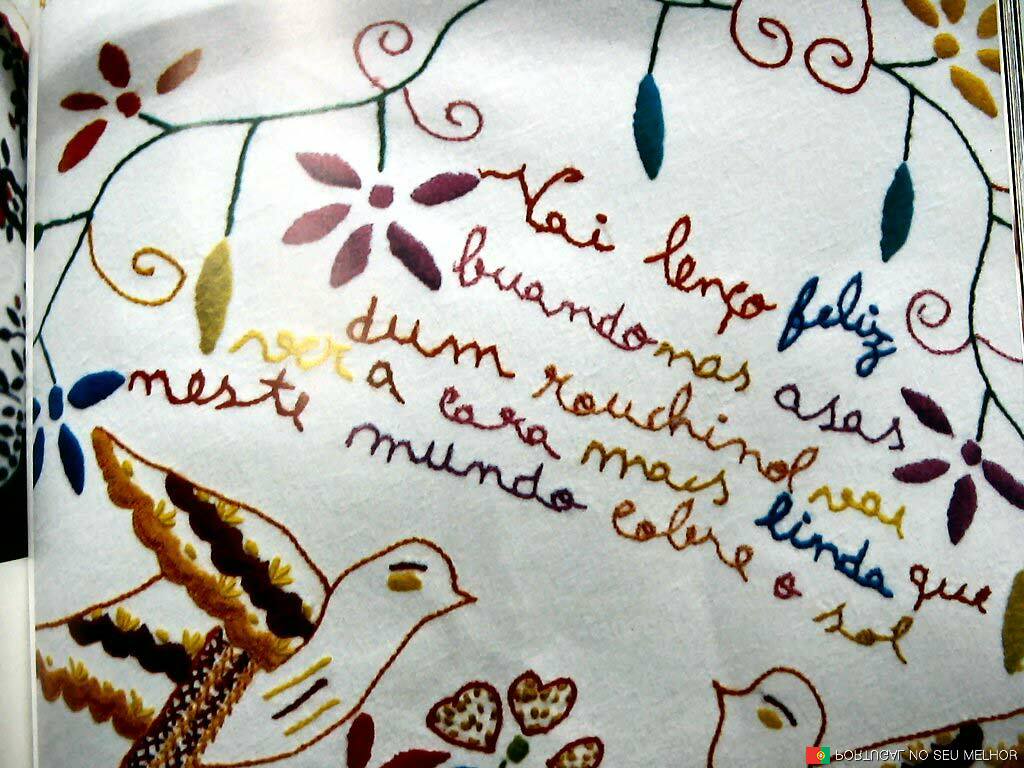 Vai lenço feliz
buando nas asas
dum rouchinol vai
ver a cara mais linda que
neste mundo cobre o sol
PORTUGAL NO SEU MELHOR